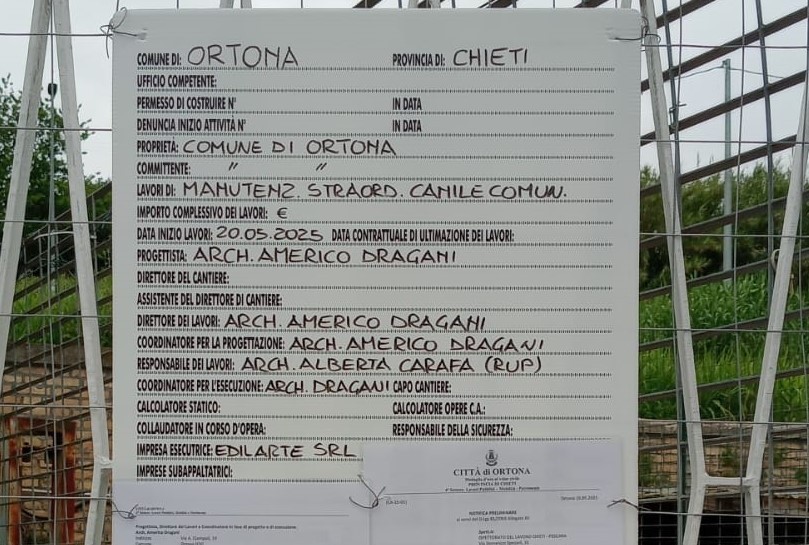 COMUNE DI: ORTONA PROVINCIA DI: CHIETI
UFFICIO COMPETENTE:
PERMESSO DI COSTRUIRE N° IN DATA
DENUNCIA INIZIO ATTIVITÀ N° IN DATA
PROPRIETÀ: COMUNE DI ORTONA
COMMITTENTE: " "
LAVORI DI: MANUTENZ. STRAORD. CANILE COMUN.
IMPORTO COMPLESSIVO DEI LAVORI: €
DATA INIZIO LAVORI: 20.05.2025 DATA CONTRATTUALE DI ULTIMAZIONE DEI LAVORI:
PROGETTISTA: ARCH. AMERICO DRAGANI
DIRETTORE DEL CANTIERE:
ASSISTENTE DEL DIRETTORE DI CANTIERE:
DIRETTORE DEI LAVORI: ARCH. AMERICO DRAGANI
COORDINATORE PER LA PROGETTAZIONE: ARCH. AMERICO DRAGANI
RESPONSABILE DEI LAVORI: ARCH. ALBERTA CARAFA (RUP)
COORDINATORE PER L'ESECUZIONE: ARCH. DRAGANI CAPO CANTIERE:
CALCOLATORE STATICO: CALCOLATORE OPERE C.A.:
COLLAUDATORE IN CORSO D'OPERA: RESPONSABILE DELLA SICUREZZA:
IMPRESA ESECUTRICE: EDILARTE SRL
IMPRESE SUBAPPALTATRICI:
CITTÀ di ORTONA
PROVINCIA DI CHIETI
NOTIFICA PRELIMINARE
Arch. Americo Dragani